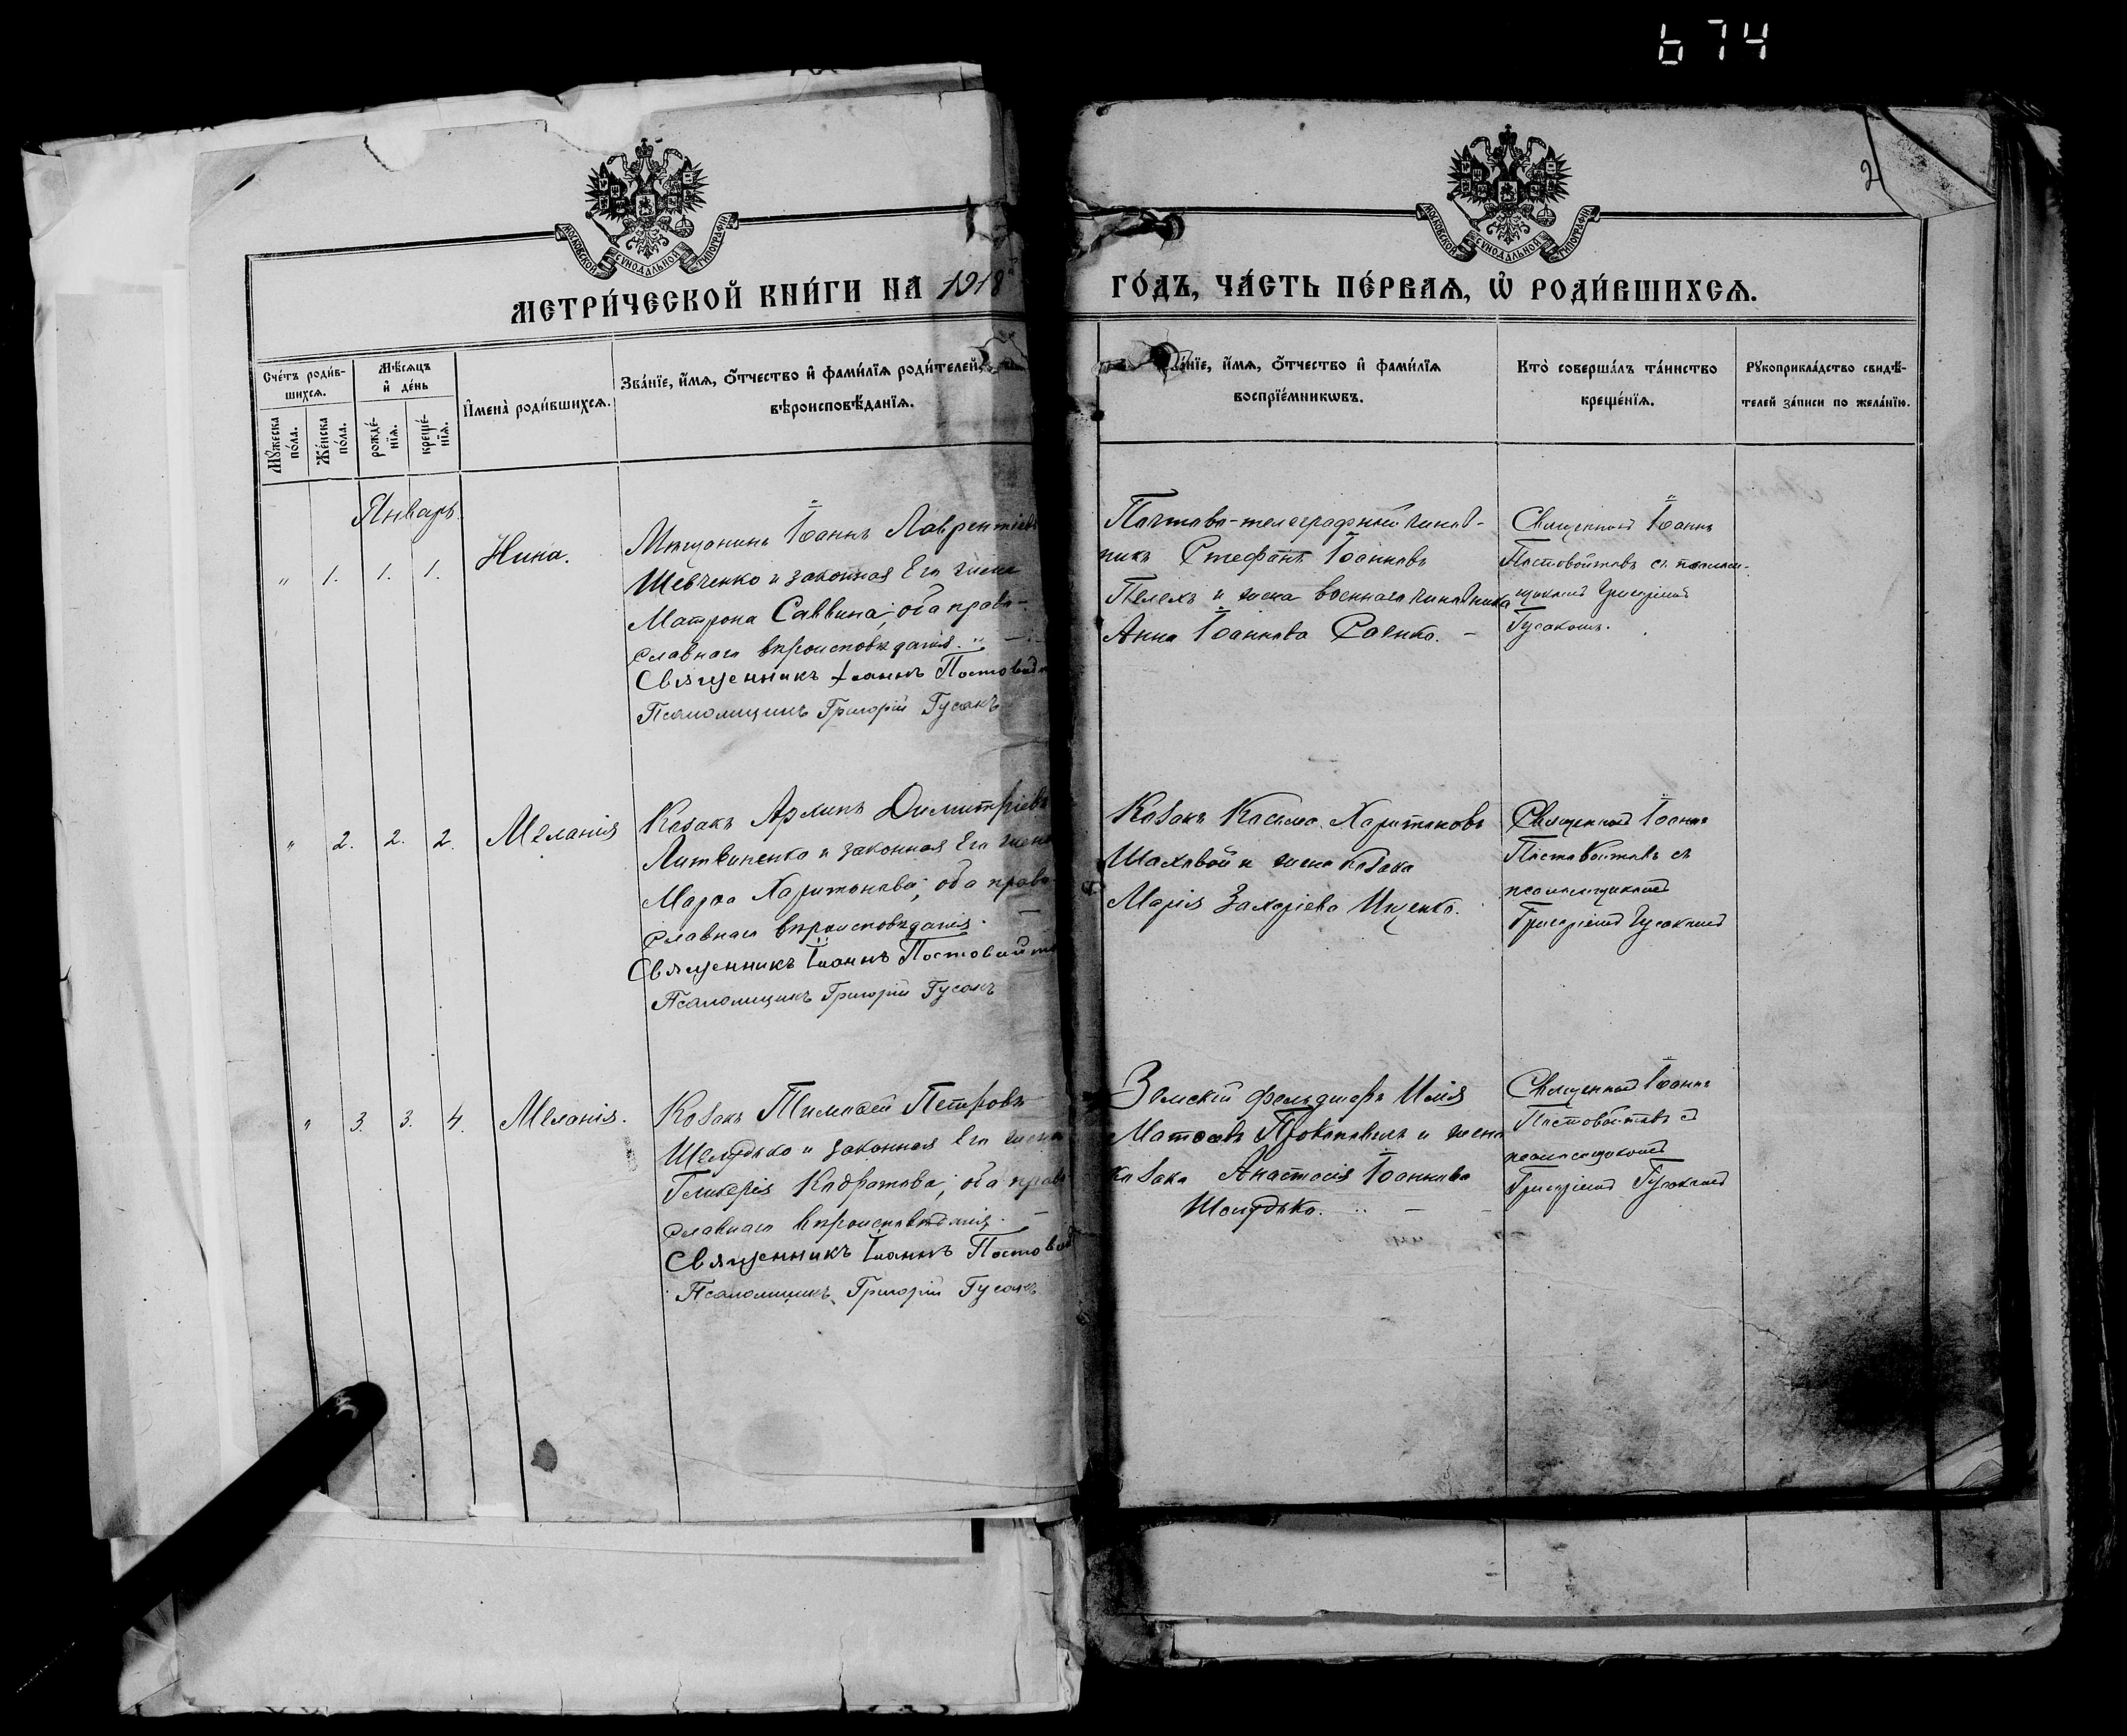 674
2
МОСКОВСКОЙ СѴНОДАЛЬНОЙ ТИПОГРАФІИ
МОСКОВСКОЙ СѴНОДАЛЬНОЙ ТИПОГРАФІИ
МЕТРИ́ЧЕСКОЙ КНИ́ГИ НА 1918 ГО́ДЪ, ЧА́СТЬ ПЕ́РВАѦ, Ѡ҆ РОДИ́ВШИХСѦ.
Сче́тъ роди́в-
шихсѧ.
Мꙋ́жеска
по́ла.
Же́нска
по́ла.
Мѣ́сѧцъ
и҆ де́нь
рожде́-
нїѧ.
креще́-
нїѧ.
И҆мена̀ роди́вшихсѧ.
Зва́нїе, и҆́мѧ, ѻ҆́тчество и҆ фами́лїѧ роди́телей,
вѣроисповѣ́данїѧ.
Зва́нїе, и҆́мѧ, ѻ҆́тчество и҆ фами́лїѧ
воспрїе́мникѡвъ.
Кто̀ соверша́лъ та́инство
креще́нїѧ.
Рꙋкоприкла́дство свидѣ́-
телей за́писи по жела́нїю.
Январь.
" 1. 1. 1. Нина.
Мѣщанинъ Іоаннъ Лаврентіевъ
Шевченко и законная Его жена
Матрона Саввина; оба право-
славнаго вѣроисповѣданія.
Священникъ Іоаннъ Постовойт
Псаломщикъ Григорій Гусакъ
Почтово-телеграфный чинов-
никъ Стефанъ Іоанновъ
Пелехъ и жена военнаго чиновника
Анна Іоаннова Саенко.
Священникъ Іоаннъ
Постовойтовъ съ псалом-
щикомъ Григоріемъ
Гусакомъ.
" 2. 2. 2. Меланія
Козакъ Архипъ Димитріевъ
Литвиненко и законная Его жена
Марѳа Харитонова; оба право-
славнаго вѣроисповѣданія.
Священникъ Іоаннъ Постовойто
Псаломщикъ Григорій Гусакъ
Козакъ Косьма Харитоновъ
Шаховой и жена козака
Марія Захаріева Ищенко.
Священникъ Іоаннъ
Постовойтовъ съ
псаломщикомъ
Григоріемъ Гусакомъ
" 3. 3. 4. Меланія.
Козакъ Тимоѳей Петровъ
Шелудько и законная Его жена
Гликерія Кодратова; оба право-
славнаго вѣроисповѣданія.
Священникъ Іоаннъ Постовой
Псаломщикъ Григорій Гусакъ
Земскій фельдшеръ Илія
Матѳевъ Прокоповичъ и жена
козака Анастасія Іоаннова
Шелудько.
Священникъ Іоаннъ
Постовойтовъ съ
псаломщикомъ
Григоріемъ Гусакомъ